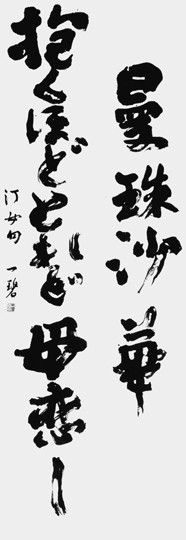 曼珠沙華
抱くほどとれど母恋し
汀女句 一碧